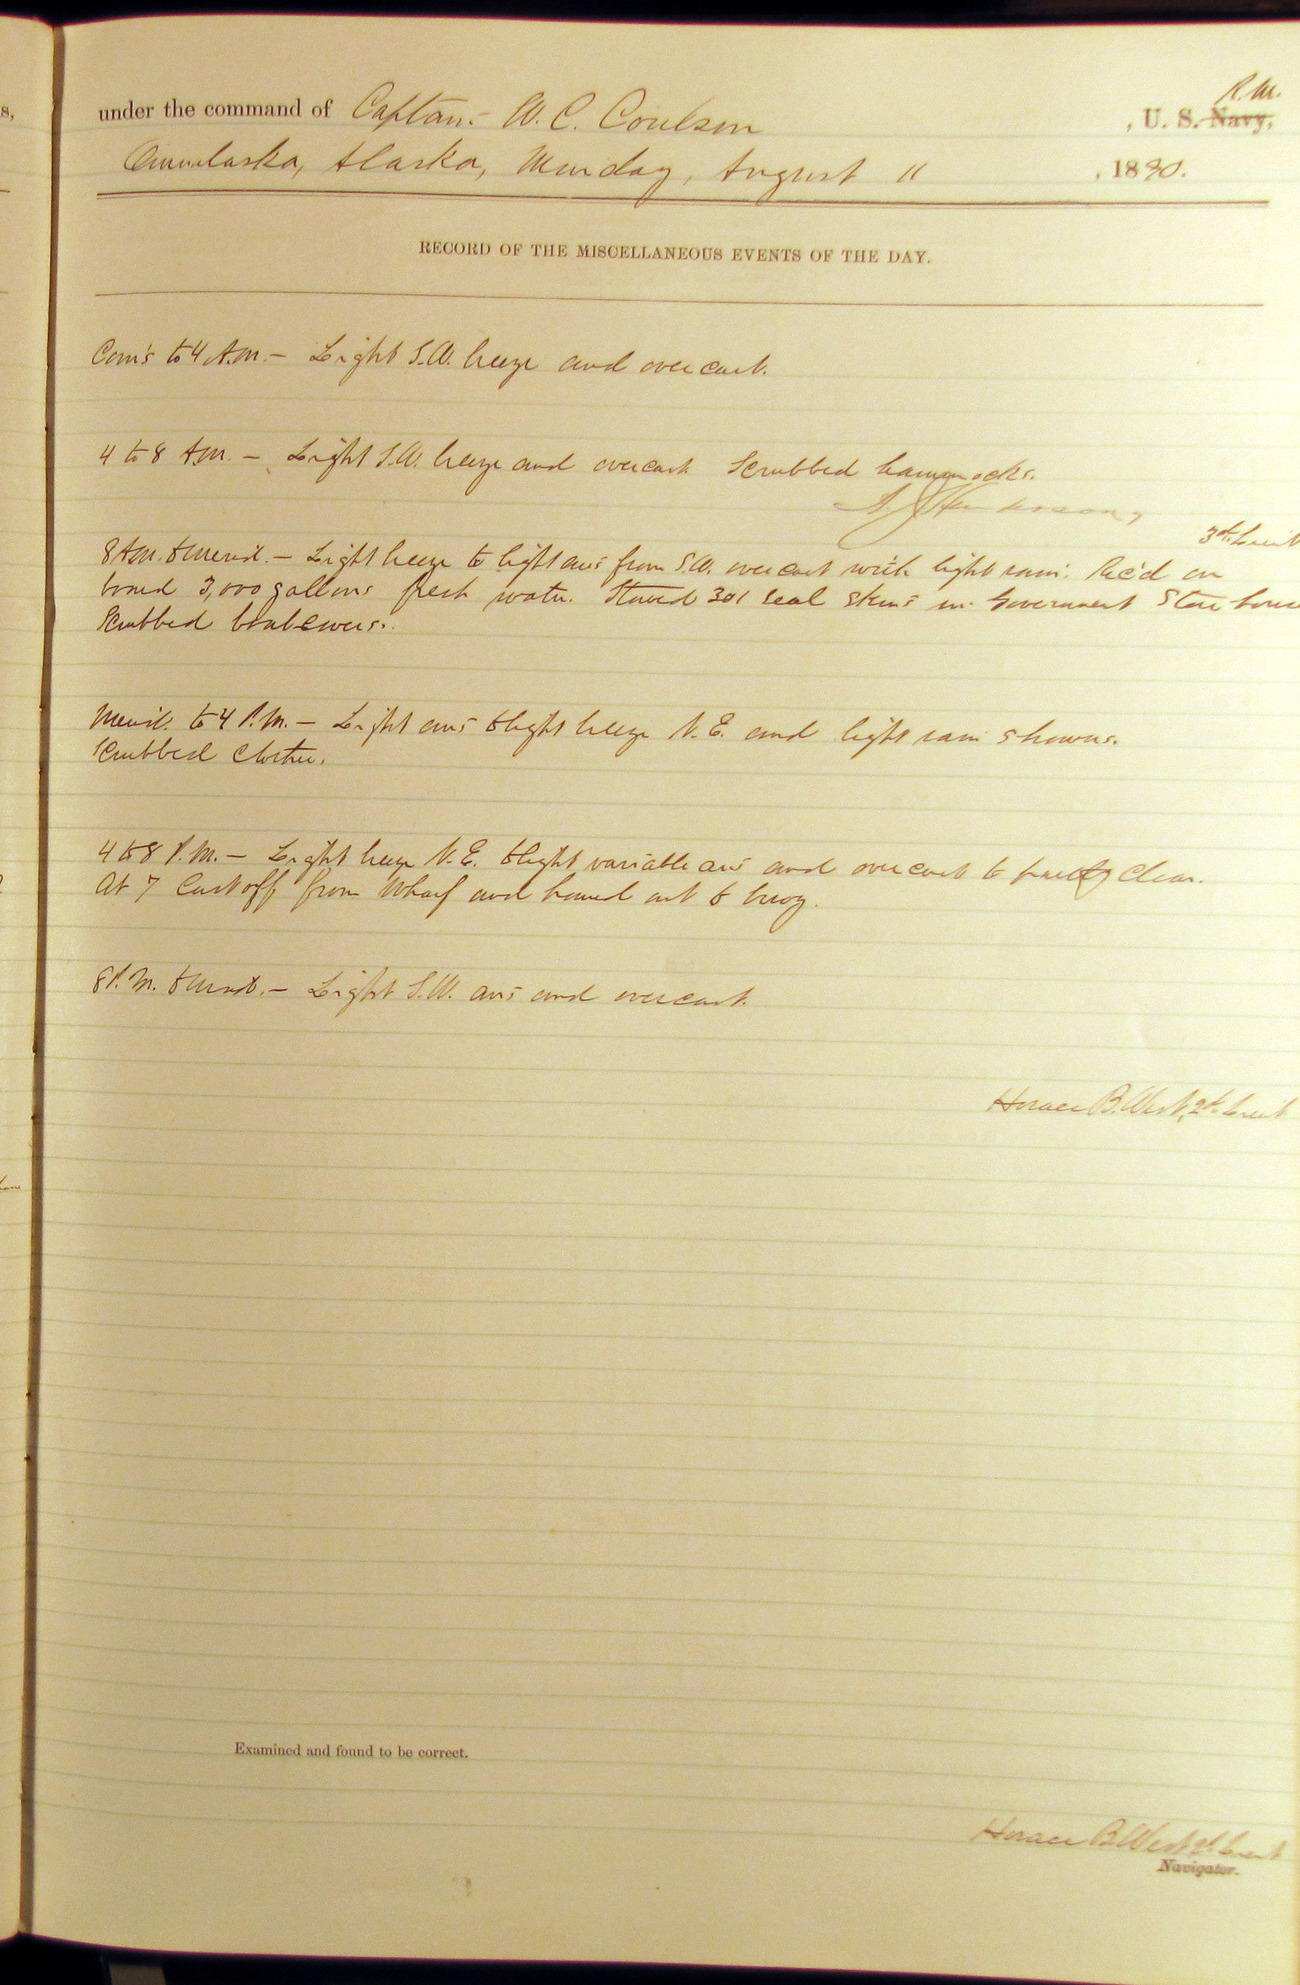 R.M.
under the command of Captain W. C. Coulson , U. S. Navy,
Ounalaska, Alaska, Monday, August 11 , 1890.
RECORD OF THE MISCELLANEOUS EVENTS OF THE DAY.
Com's to 4 A.M. – Light S.W. breeze and overcast.
4 to 8 A.M. – Light S.W. breeze and overcast. Scrubbed hammocks.
3d Lieut
8 A.M. to Merid. – Light breeze to light airs from S.W. overcast with light rain. Rec'd on
board 3,000 gallons fresh water. Stowed 301 seal skins in Government Store house
Scrubbed boat covers.
Merid. to 4 P.M. – Light airs to light breeze N.E. and light rain showers.
Scrubbed clothes.
4 to 8 P.M. – Light breeze N.E. to light variable airs and overcast to partly clear.
At 7 Cast off from Wharf and hauled out to buoy.
8 P.M. to Midt. – Light S.W. airs and overcast.
Horace B. West, 2d Lieut
Examined and found to be correct.
Horace B. West 2d Lieut
Navigator.